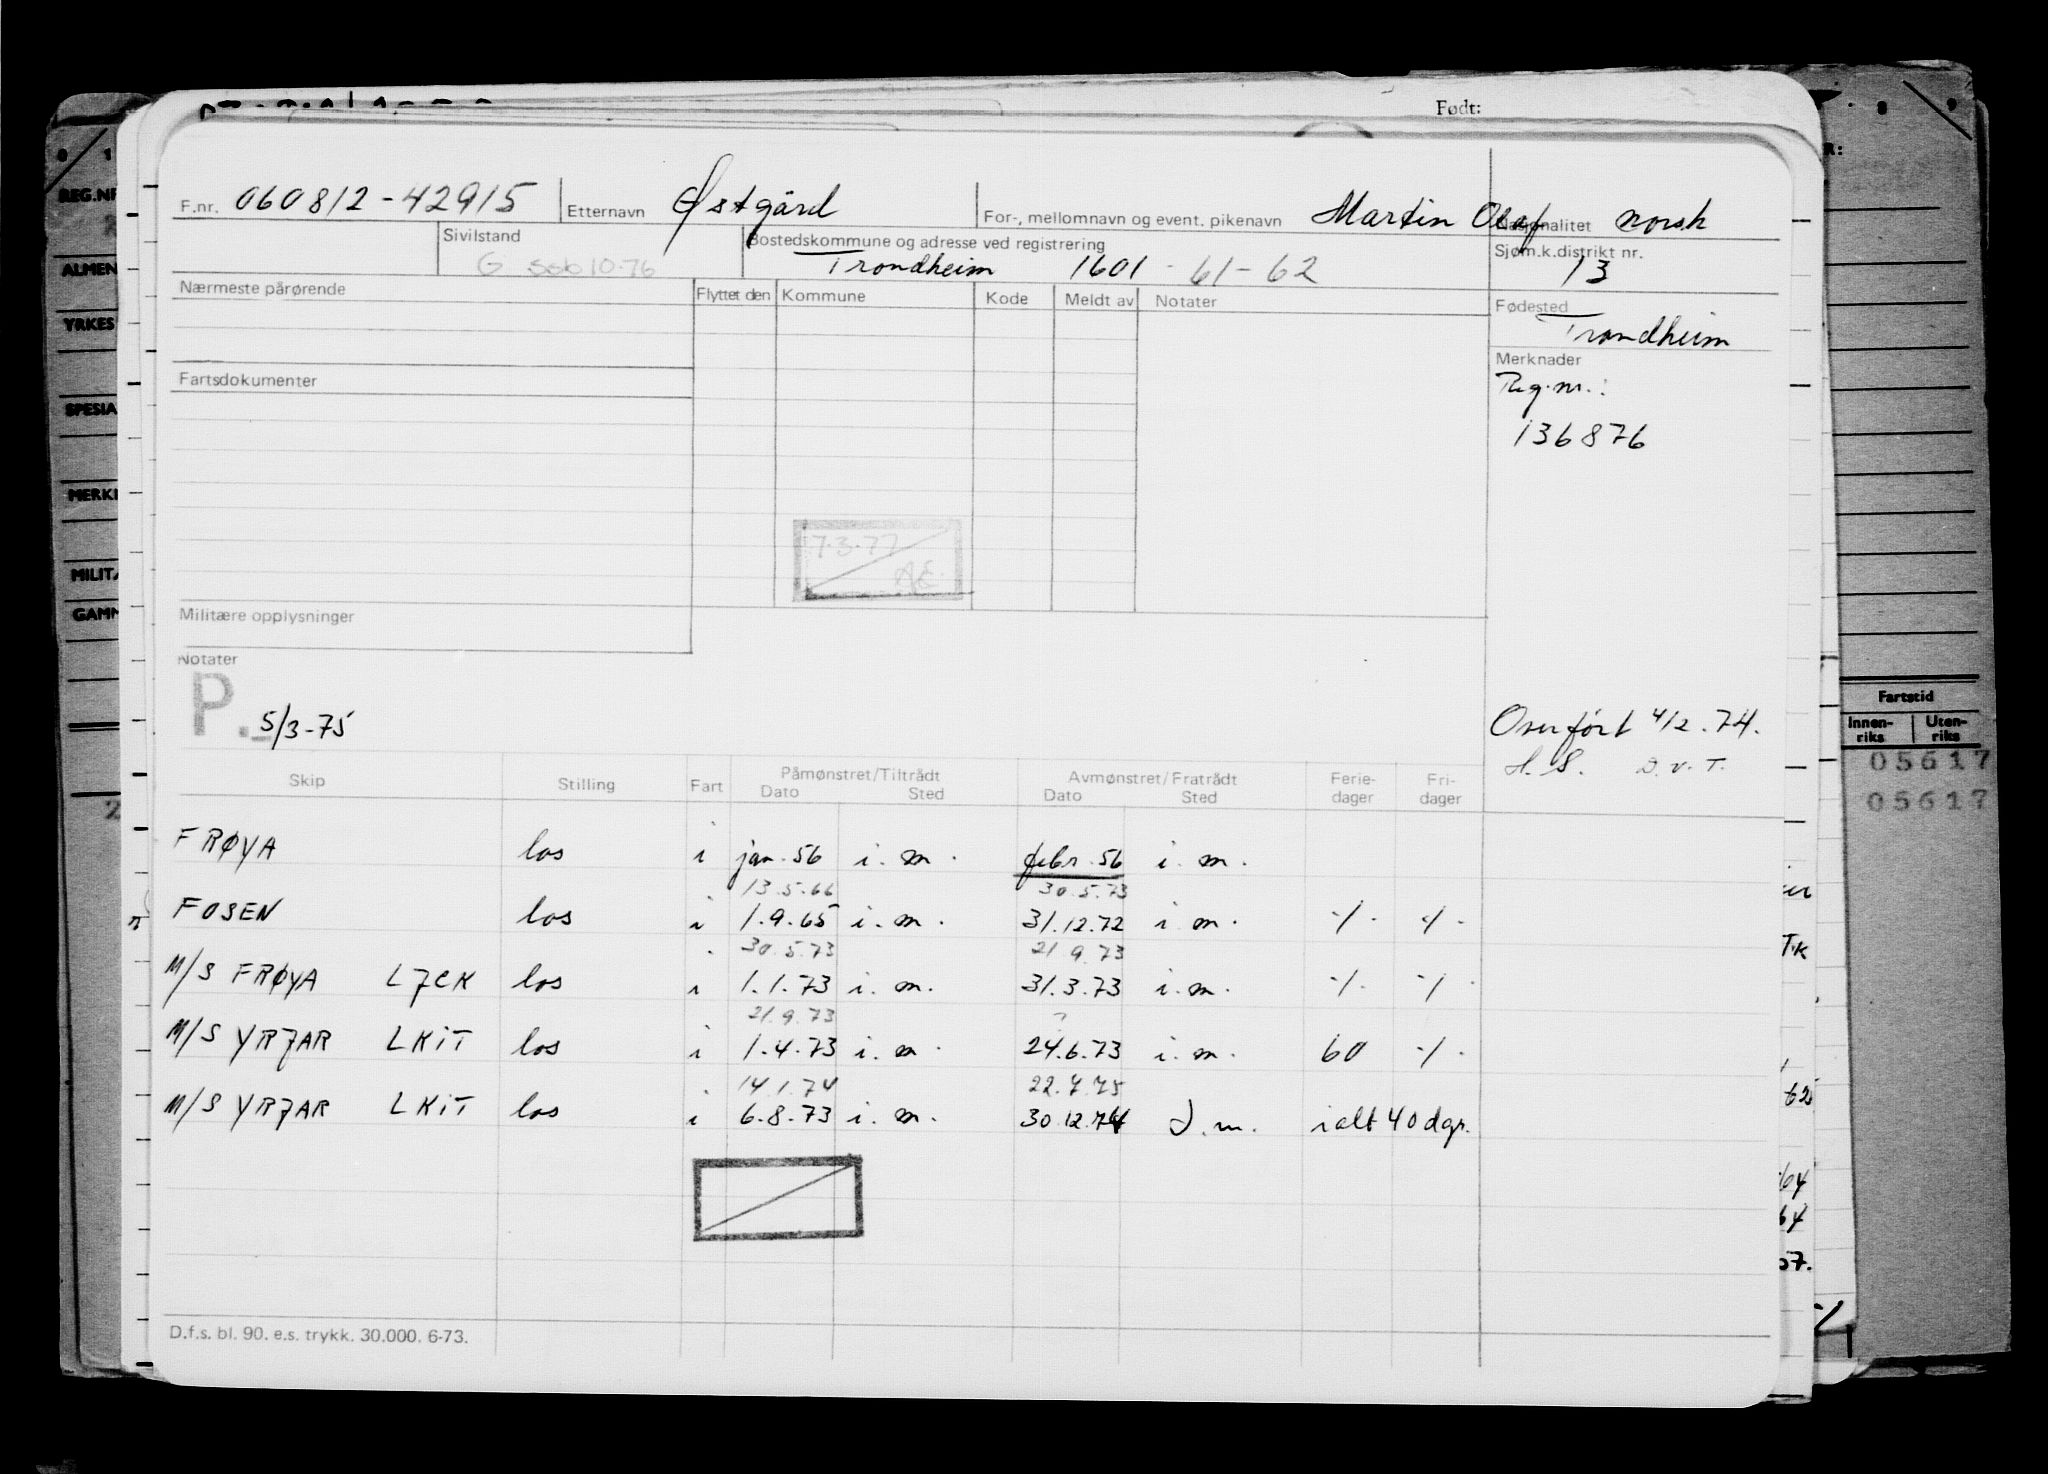 Født:
F.nr. 060812-42915 Etternavn Østgård For-, mellomnavn og event. pikenavn Martin Olaf Nasjonalitet norsk
Sivilstand G ssb 10-76 Bostedskommune og adresse ved registrering Trondheim 1601 - 61-62 Sjøm.k.distrikt nr. 13
Nærmeste pårørende Flyttet den Kommune Kode Meldt av Notater Fødested Trondheim
Merknader
Reg.nr.:
136876
Fartsdokumenter
7.3.77
AE
Militære opplysninger
Notater
P. 5/3-75
Overført 4/2.74.
H.S. D.v.T.
Skip Stilling Fart Påmønstret/Tiltrådt Dato Sted Avmønstret/Fratrådt Dato Sted Ferie-dager Fri-dager
FRØYA los i jan.56 i.m. febr.56 i.m.
13.5.66 30.5.73
FOSEN los i 1.9.65 i.m. 31.12.72 i.m. -/- -/-
30.5.73 21.9.73
M/S FRØYA LJCK los i 1.1.73 i.m. 31.3.73 i.m. -/- -/-
21.9.73 ?
M/S YRJAR LKIT los i 1.4.73 i.m. 24.6.73 i.m. 60 -/-
14.1.74 22.7.75
M/S YRJAR LKIT los i 6.8.73 i.m. 30.12.74 i.m. ialt 40 dgr.
D.f.s. bl. 90. e.s. trykk. 30.000. 6-73.
0 1
REG.NR
ALMEN
YRKES
SPESIA
MERK
MILIT
GAMM
8 9
R:
Fartstid
Innen-riks Uten-riks
05617
05617